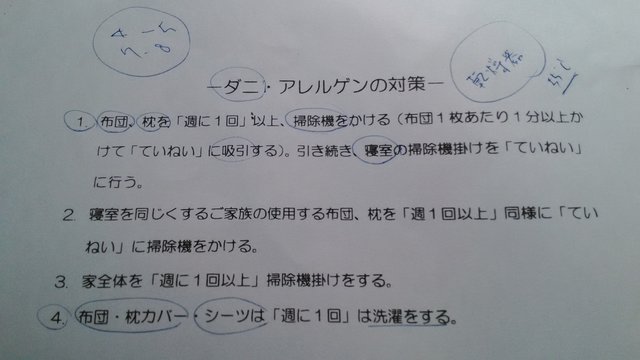 4 - 5
7. 8
乾燥器
55℃
－ダニ・アレルゲンの対策－
1. 布団、枕を「週に1回」以上、掃除機をかける（布団1枚あたり1分以上か
けて「ていねい」に吸引する）。引き続き、寝室の掃除機掛けを「ていねい」
に行う。
2. 寝室を同じくするご家族の使用する布団、枕を「週1回以上」同様に「てい
ねい」に掃除機をかける。
3. 家全体を「週に1回以上」掃除機掛けをする。
4. 布団・枕カバー・シーツは「週に1回」は洗濯をする。